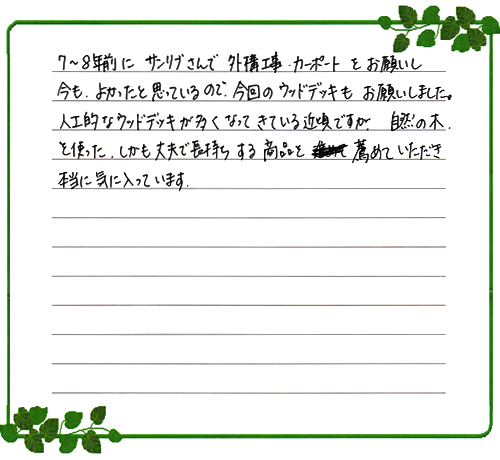 7〜8年前に サンリブさんで 外構工事・カーポートをお願いし
今も、よかったと思っているので、今回のウッドデッキも お願いしました。
人工的なウッドデッキが多くなってきている近頃ですが、自然の木、
を使った、しかも丈夫で長持ちする商品を 薦めていただき
本当に気に入っています。